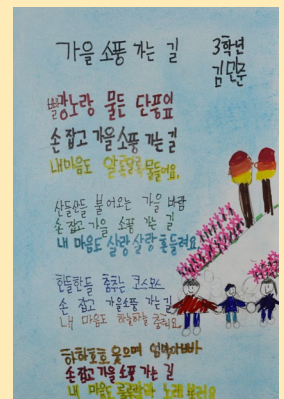 가을 소풍 가는 길
3학년
김민준
빨강노랑 물든 단풍잎
손 잡고 가을 소풍 가는 길
내마음도 알록달록 물들어요,
산들산들 불어오는 가을 바람
손 잡고 가을 소풍 가는 길
내 마음도 살랑살랑 흔들려요
한들한들 춤추는 코스모스
손 잡고 가을소풍 가는길
내 마음도 하늘하늘 춤춰요
하하호호 웃으며 엄마아빠
손잡고 가을 소풍 가는 길
내 마음도 룰루랄라 노래 불러요